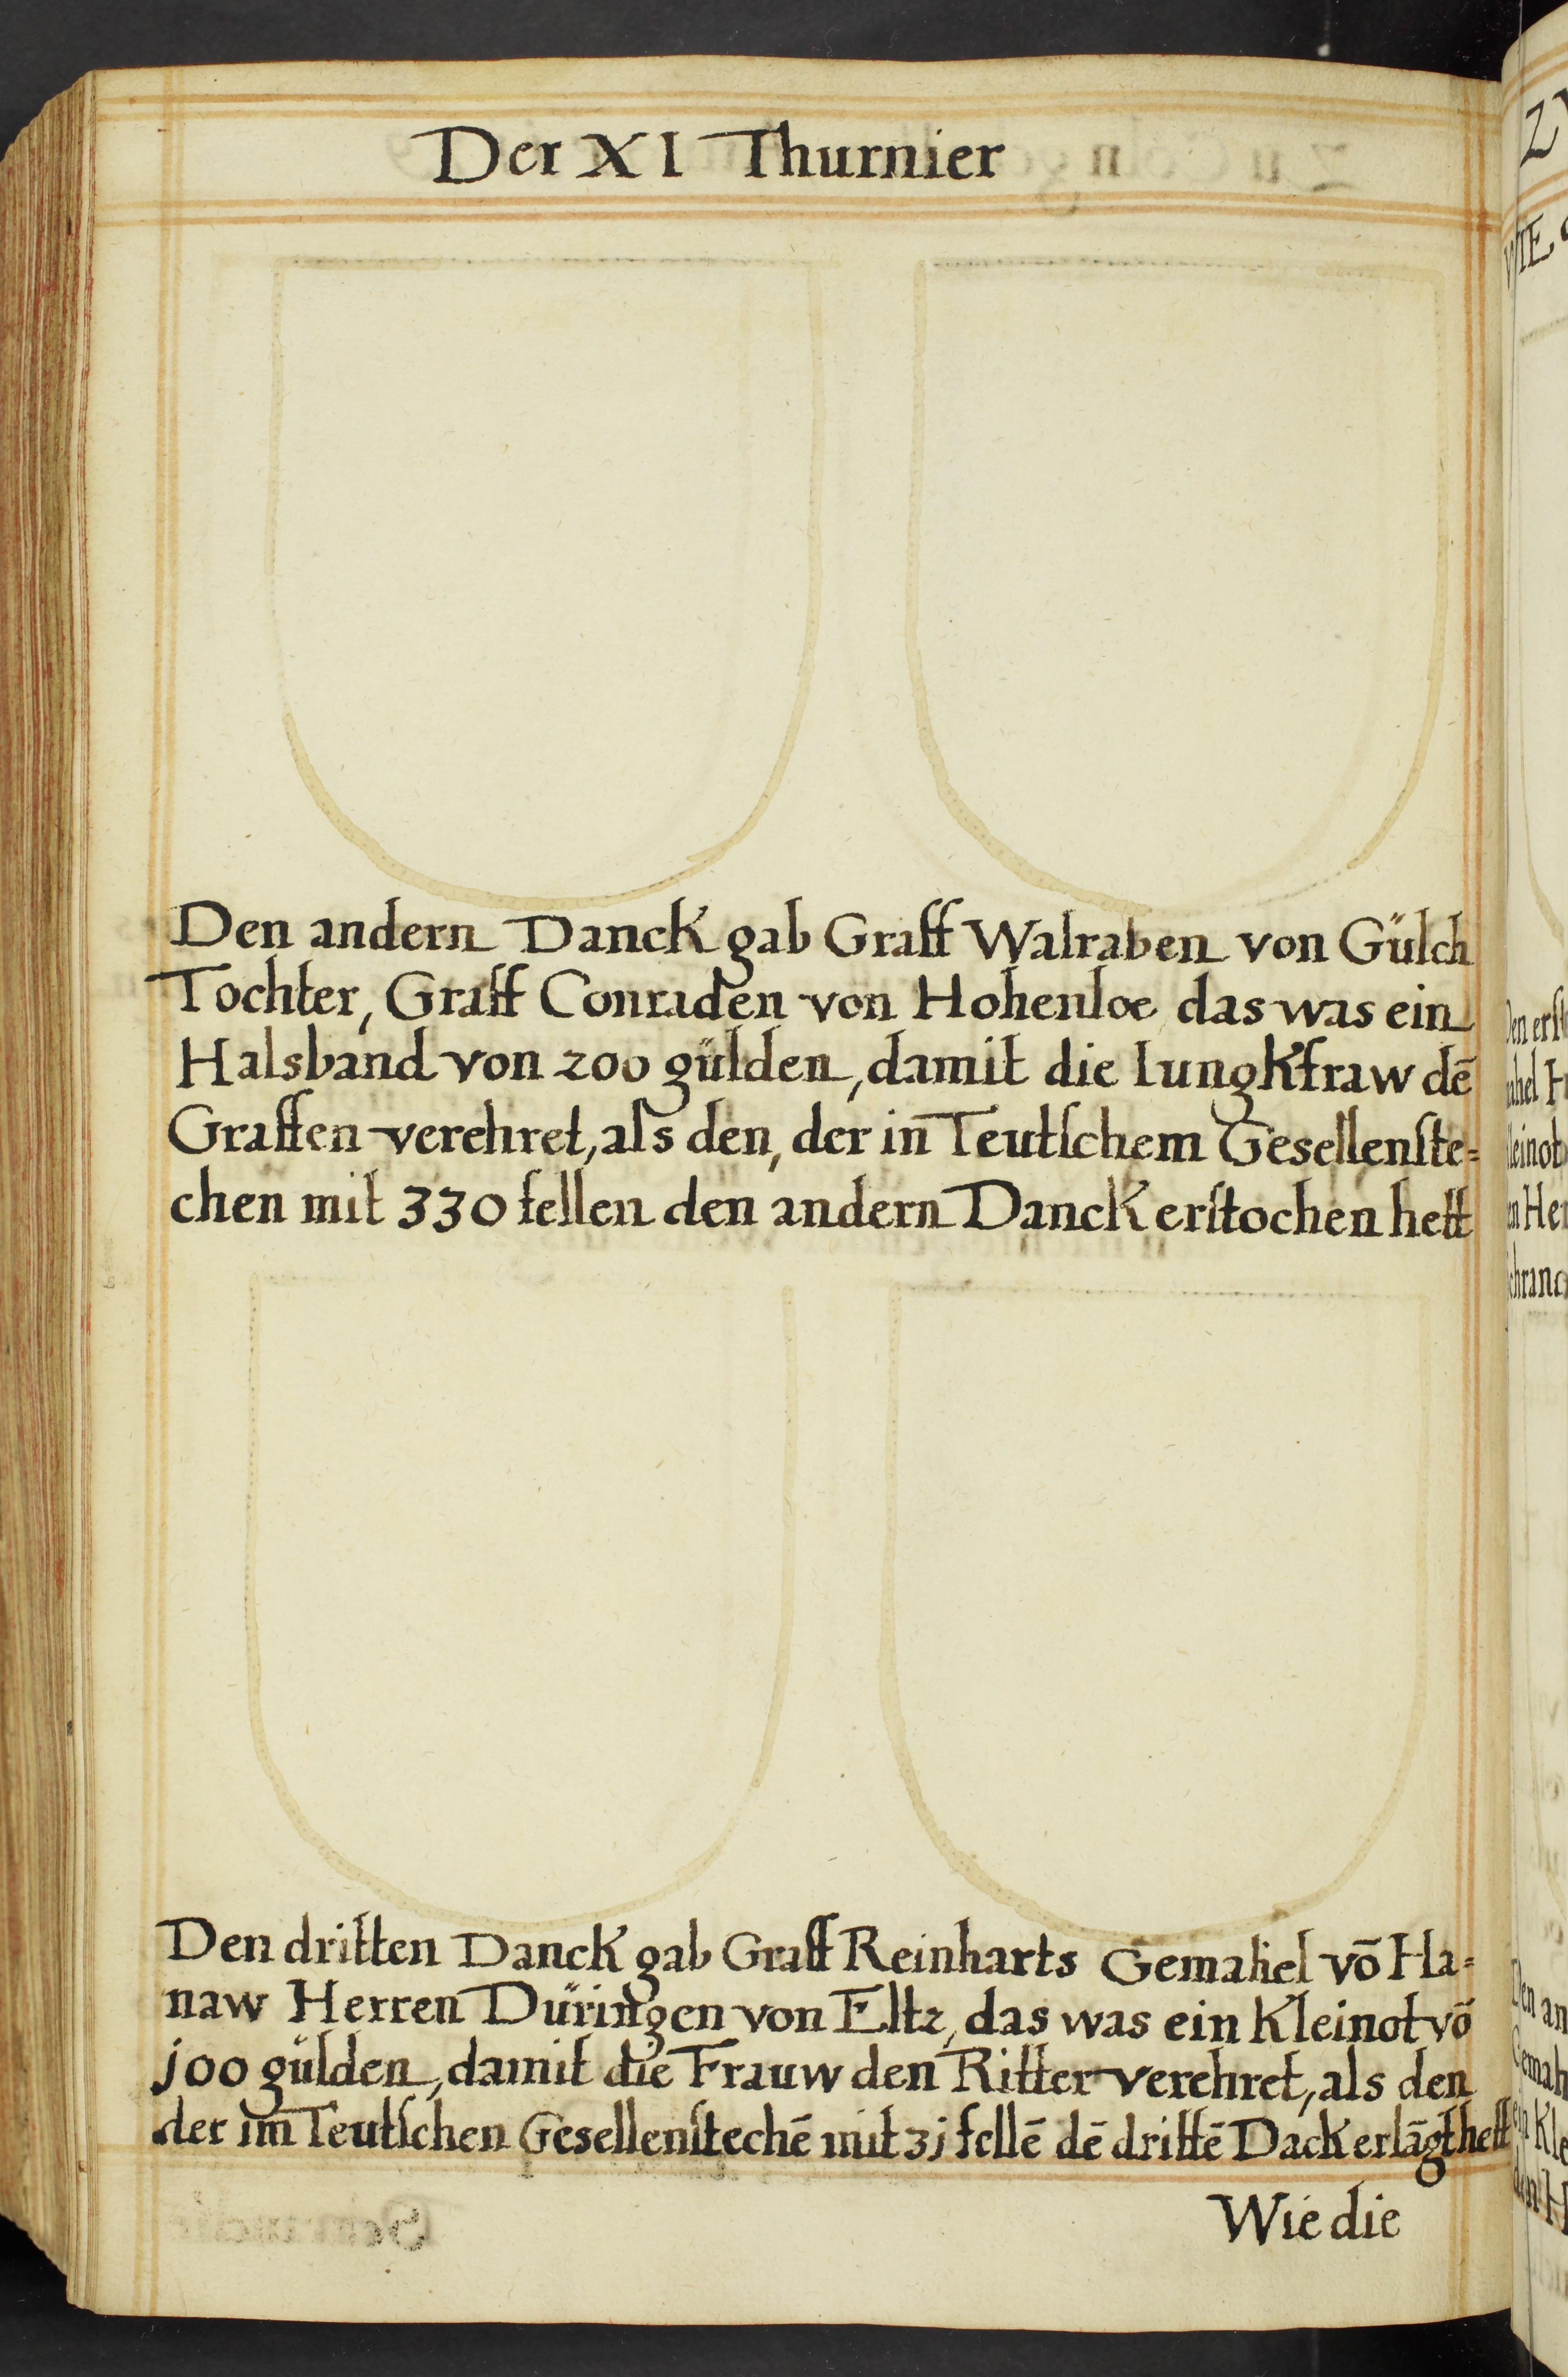 Der XI Thurnier
Den andern Danck gab Graff Walraben von Gülch
Tochter, Graff Conraden von Hohenloe das was ein
Halsband von 200 gülden, damit die Iungkfraw dē
Graffen verehret, als den, der in Teutſchem Gesellenſte=
chen mit 330 fellen den andern Danck erſtochen hett
Den dritten Danck gab Graff Reinharts Gemahel vō Ha=
naw Herren Düringen von Eltz, das was ein Kleinot vō
j00 gülden, damit die Frauw den Ritter verehret, als den
der im Teutſchen Gesellenſtechē mit 3j fellē dē drittē Dack erlāgt hett
Wie die